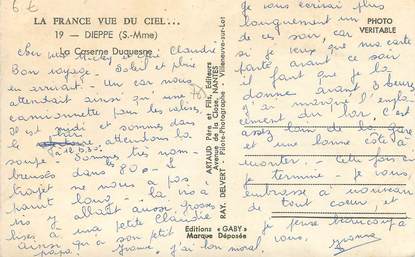 LA FRANCE VUE DU CIEL...
19 — DIEPPE (S.-Mme)
La Caserne Duquesne
cher Claude
Bon voyage. Soleil et pluie
en arrivant. Un car nous
attendait ainsi qu'une
camionnette pour les valises
Il est midi et sommes dans
le attendons la
soupe. Sommes très nom-
breuses dans les 80. Le
trajet ne nous a pas
paru long. la
y allant aussi
a une petite Claudie
ainsi qu'a son petit
papa. j'ai bon moral.
ARTAUD Père et Fils, Editeurs
Avenue de la Close, NANTES
RAY. DELVERT Pilote-Photographe - Villeneuve-sur-Lot
Editions « GABY »
Marque Déposée
PHOTO
VERITABLE
je vous écrirai plus
longuement un
de ces soir, car
si je veux que ma carte
parte avant ce soir
il faut que je la
donne avant 3 heures
j'ai marqué l'empla-
cement du lor, c'est
assez loin de la gare
et une bonne côte à
monter. Cette fois ci
je termine, je vous
embrasse à nouveau
de tout coeur, et
je pense beaucoup à
vous. Yvonne